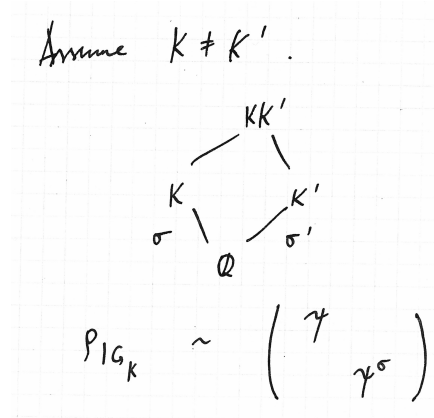 Assume K ≠ K'.
KK'
K K'
σ σ'
ℚ
ρ|G_K ~ ( ψ
ψ^σ )